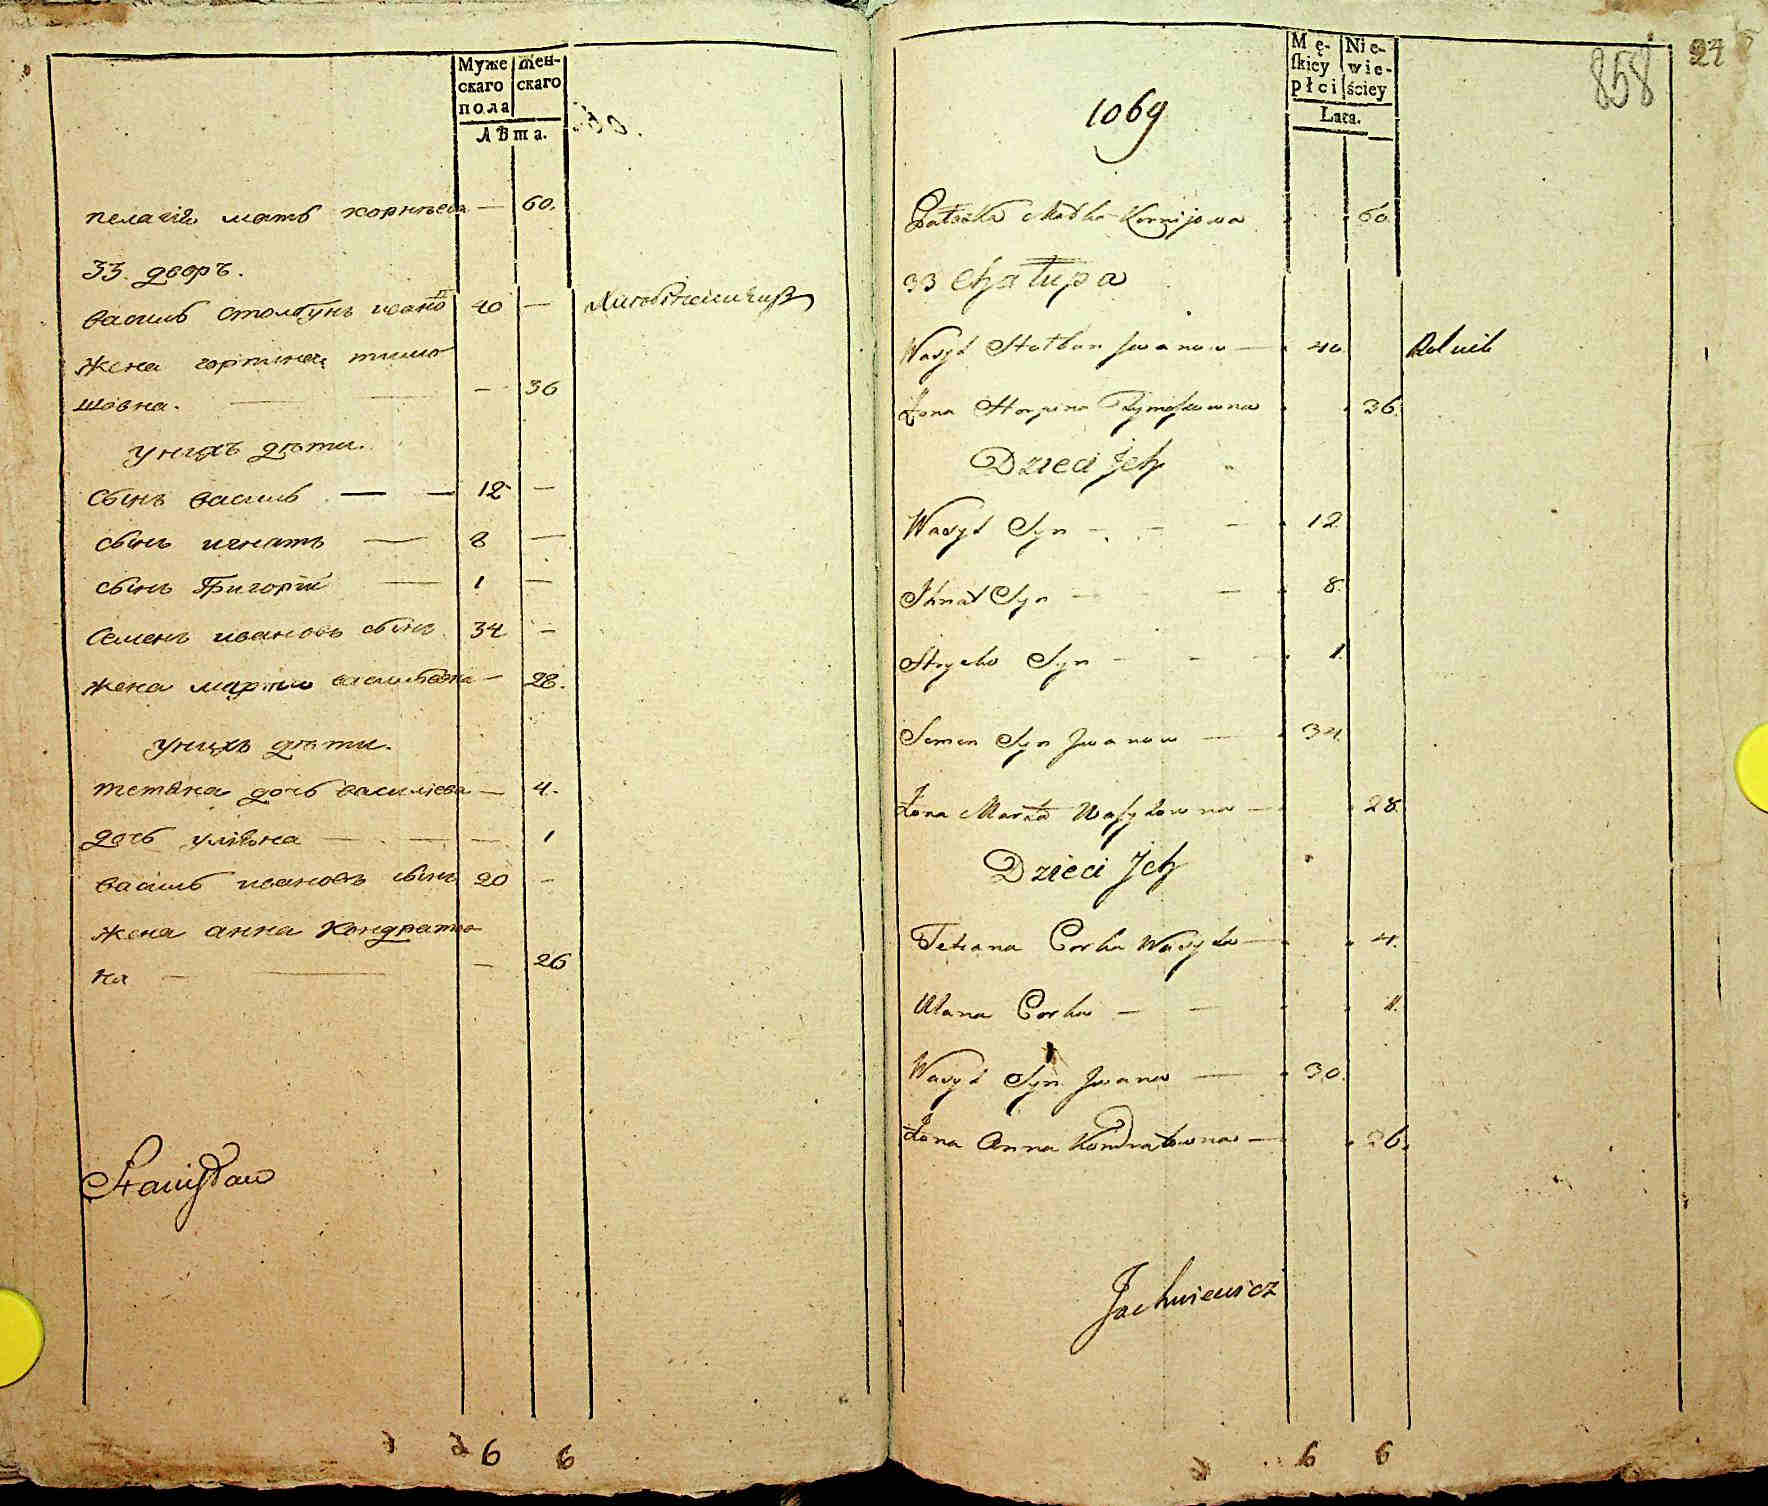 Муже
скаго
пола
Жен-
скаго
Лѣта.
пелагія мать корнѣева — 60.
33. дворъ.
василь столбунъ ивано 40 —
жена горпина тимо
шовна. — 36
унихъ дѣти.
сынъ василь — — 12 —
сынъ игнатъ — 8 —
сынъ Григорій — 1 —
семенъ ивановъ сынъ 34 —
жена марта василевна — 28.
унихъ дѣти.
тетяна дочь василіева — 4.
дочь уляна — — 1
василь ивановъ сынъ 20 —
жена анна кондратов
на — — 26
Stanisław
6 6
858
1069
Mę-
skiey
płci
Nie-
wie-
ściey
Lata.
Matka Kornijowa 60.
33 Chałupa
Wasyl Stołbun Iwanow — 40. Rolnik
Żona Horpina Tymoszowna 36.
Dzieci Ich
Wasyl Syn — — — 12.
Ihnat Syn — — 8.
Hryćko Syn — — — 1.
Semen Syn Iwanow — 34.
Żona Marta Wasylowna — 28.
Dzieci Ich
Tetiana Corka Wasyla — 4.
Ulana Corka — — 1.
Wasyl Syn Iwana — 30.
Żona Anna Kondratowna — 26.
Jachniewicz
6 6